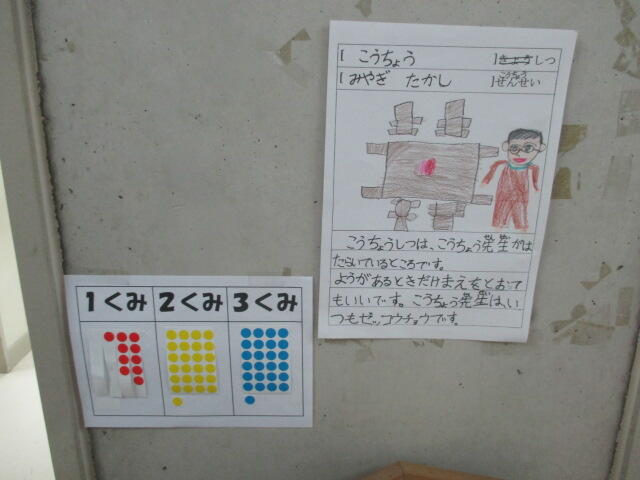 こうちょう しつ
みやぎ たかし こうちょう せんせい
こうちょうしつは、こうちょう先生がは
たらいているところです。
ようがあるときだけまえをとおて
もいいです。こうちょう先生は、い
つもゼッコウチョウです。
1くみ 2くみ 3くみ